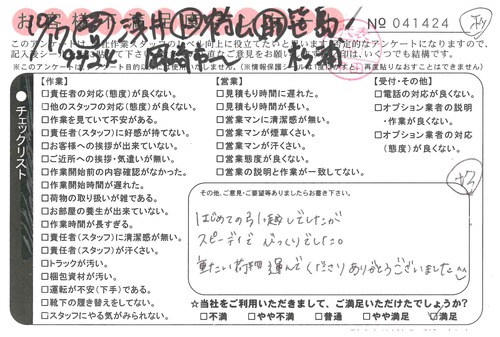 No 041424
【作業】
□責任者の対応(態度)が良くない。
□他のスタッフの対応(態度)が良くない。
□作業を見ていて不安がある。
□責任者(スタッフ)に好感が持てない。
□お客様への挨拶が出来ていない。
□ご近所への挨拶・気遣いが無い。
□作業開始前の内容確認がなかった。
□作業開始時間が遅れた。
□荷物の取り扱いが雑である。
□お部屋の養生が出来ていない。
□作業時間が長すぎる。
□責任者(スタッフ)に清潔感が無い。
□責任者(スタッフ)が汗くさい。
□トラックが汚い。
□梱包資材が汚い。
□運転が不安(下手)である。
□靴下の履き替えをしてない。
□スタッフにやる気がみられない。
【営業】
□見積もり時間に遅れた。
□見積もり時間が長い。
□営業マンに清潔感が無い。
□営業マンが煙草くさい。
□営業マンが汗くさい。
□営業態度が良くない。
□営業の説明と作業が一致してない。
【受付・その他】
□電話の対応が良くない。
□オプション業者の説明
・作業が良くない。
□オプション業者の対応
(態度)が良くない。
チェックリスト
その他、ご意見・ご要望等ありましたらお書き下さい。
はじめての引っ越しでしたが
スピーディで びっくりでした。
重たい荷物 運んでくださりありがとうございました
☆当社をご利用いただきまして、ご満足いただけたでしょうか?
□不満 □やや不満 □普通 □やや満足 ☑満足